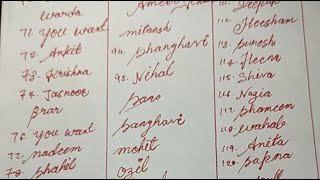 Wanda
71. You want
72. Ankit
73. Krishna
74. Jasnoor
Brar
76. You want
77. nadeem
78. Shakil
mitansh
94. Shanghavi
95. Nehal
Sano
Sanghavi
mohit
Ozil
Deepak
112. Heesham
113. Punesh
114. Heena
115. Shiva
116. Nazia
117. Shamcom
118. Wahab
119. Aneta
120. Sapna